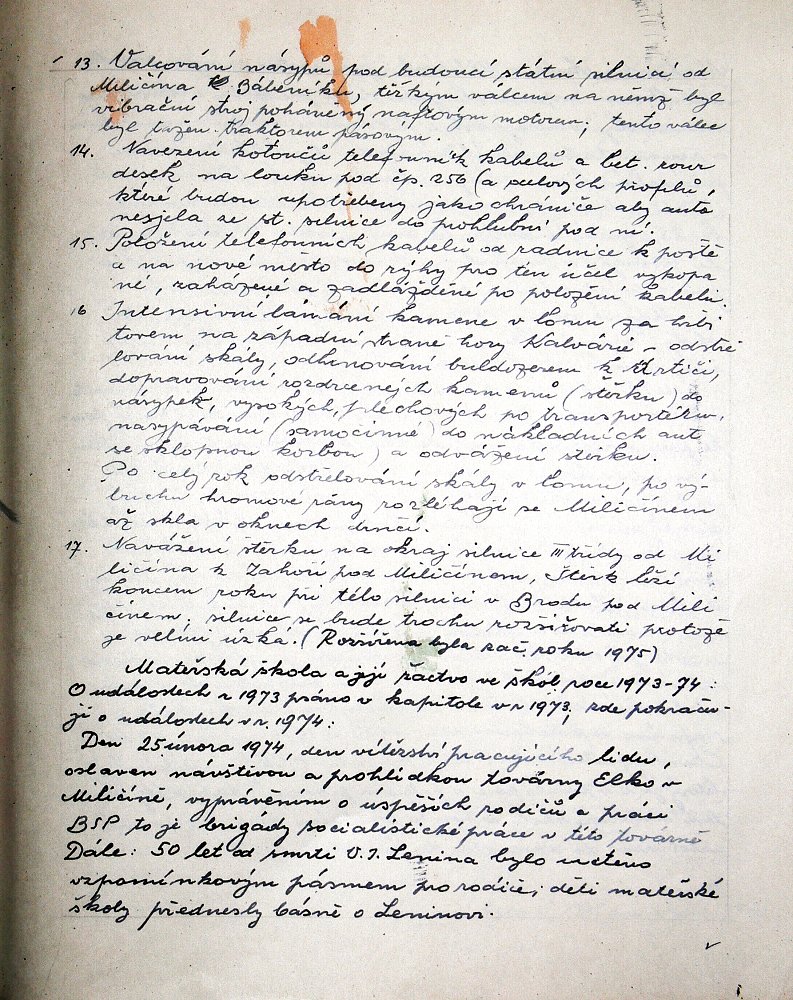 13. Valcování násypů pod budoucí státní silnicí od
Miličína k Báběníku, těžkým válcem na němž byl
vibrační stroj poháněný naftovým motorem; tento válec
byl tažen traktorem pásovým.
14. Navezení kotoučů telefonník kabelů a bet. rour
desek na louku pod čp. 256 (a ocelových profilů,
které budou upotřebeny jako chrániče aby auta
nesjela ze st. silnice do prohlubní pod ní.
15. Položení telefonních kabelů od radnice k poště
a na nové město do rýhy pro ten účel vykopa
né, zaházené a zadlážděné po položení kabelů.
16 Intensivní lámání kamene v lomu za hřbi
tovem na západní straně hory Kalvárie – odstře
lování skály, odhrnování buldozerem k drtiči,
dopravování rozdrcenejch kamenů (štěrku) do
násypek, vysokých, plechových po transportéru.
nasypávání (samočinné) do nákladních aut
se sklopnou korbou) a odvážení štěrku.
Po celý rok odstřelování skály v lomu, po vý-
buchu hromové rány rozléhají se Miličínem
až skla v oknech drnčí.
17. Navážení štěrku na okraj silnice III třídy od Mi
ličína k Záhoří pod Miličínem, Štěrk leží
koncem roku při této silnici v Brodu pod Mili
čínem, silnice se bude trochu rozšiřovati protože
je velmi úzká. (Rozšířena byla zač. roku 1975)
Mateřská škola a její žactvo ve škol. roce 1973-74:
O událostech r 1973 psáno v kapitole v r 1973, zde pokraču-
ji o událostech v r. 1974:
Den 25 února 1974, den vítězství pracujícího lidu,
oslaven návštěvou a prohlídkou továrny Elko v
Miličíně, vyprávěním o úspěších rodičů a práci
BSP to je brigády socialistické práce v této továrně
Dále: 50 let od smrti V. I. Lenina bylo uctěno
vzpomínkovým pásmem pro rodiče; děti mateřské
školy přednesly básně o Leninovi.